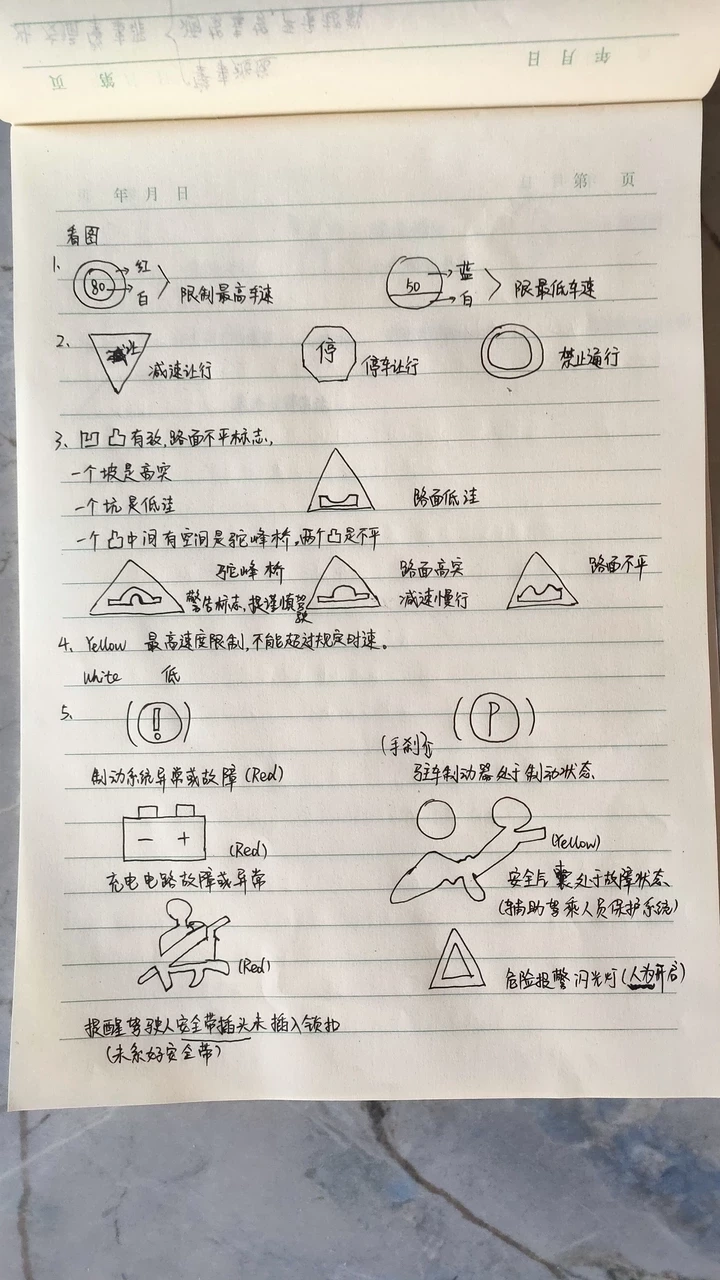 年 月 日
第 页
年 月 日 第 页
看图
1、 80 红 白 限制最高车速 50 蓝 白 限最低车速
2、 减让 减速让行 停 停车让行 禁止通行
3、凹凸有致,路面不平标志,
一个坡是高突
一个坑是低洼 路面低洼
一个凸中间有空间是驼峰桥,两个凸是不平
驼峰桥 路面高突 路面不平
警告标志,提谨慎驾驶 减速慢行
4、Yellow 最高速度限制,不能超过规定时速。
White 低
5、 (!) (P)
(手刹)
制动系统异常或故障(Red) 驻车制动器处于制动状态
- + (Red) (Yellow)
充电电路故障或异常 安全气囊处于故障状态
(辅助驾乘人员保护系统)
(Red) 危险报警闪光灯(人为开启)
提醒驾驶人安全带插头未插入锁扣
(未系好安全带)